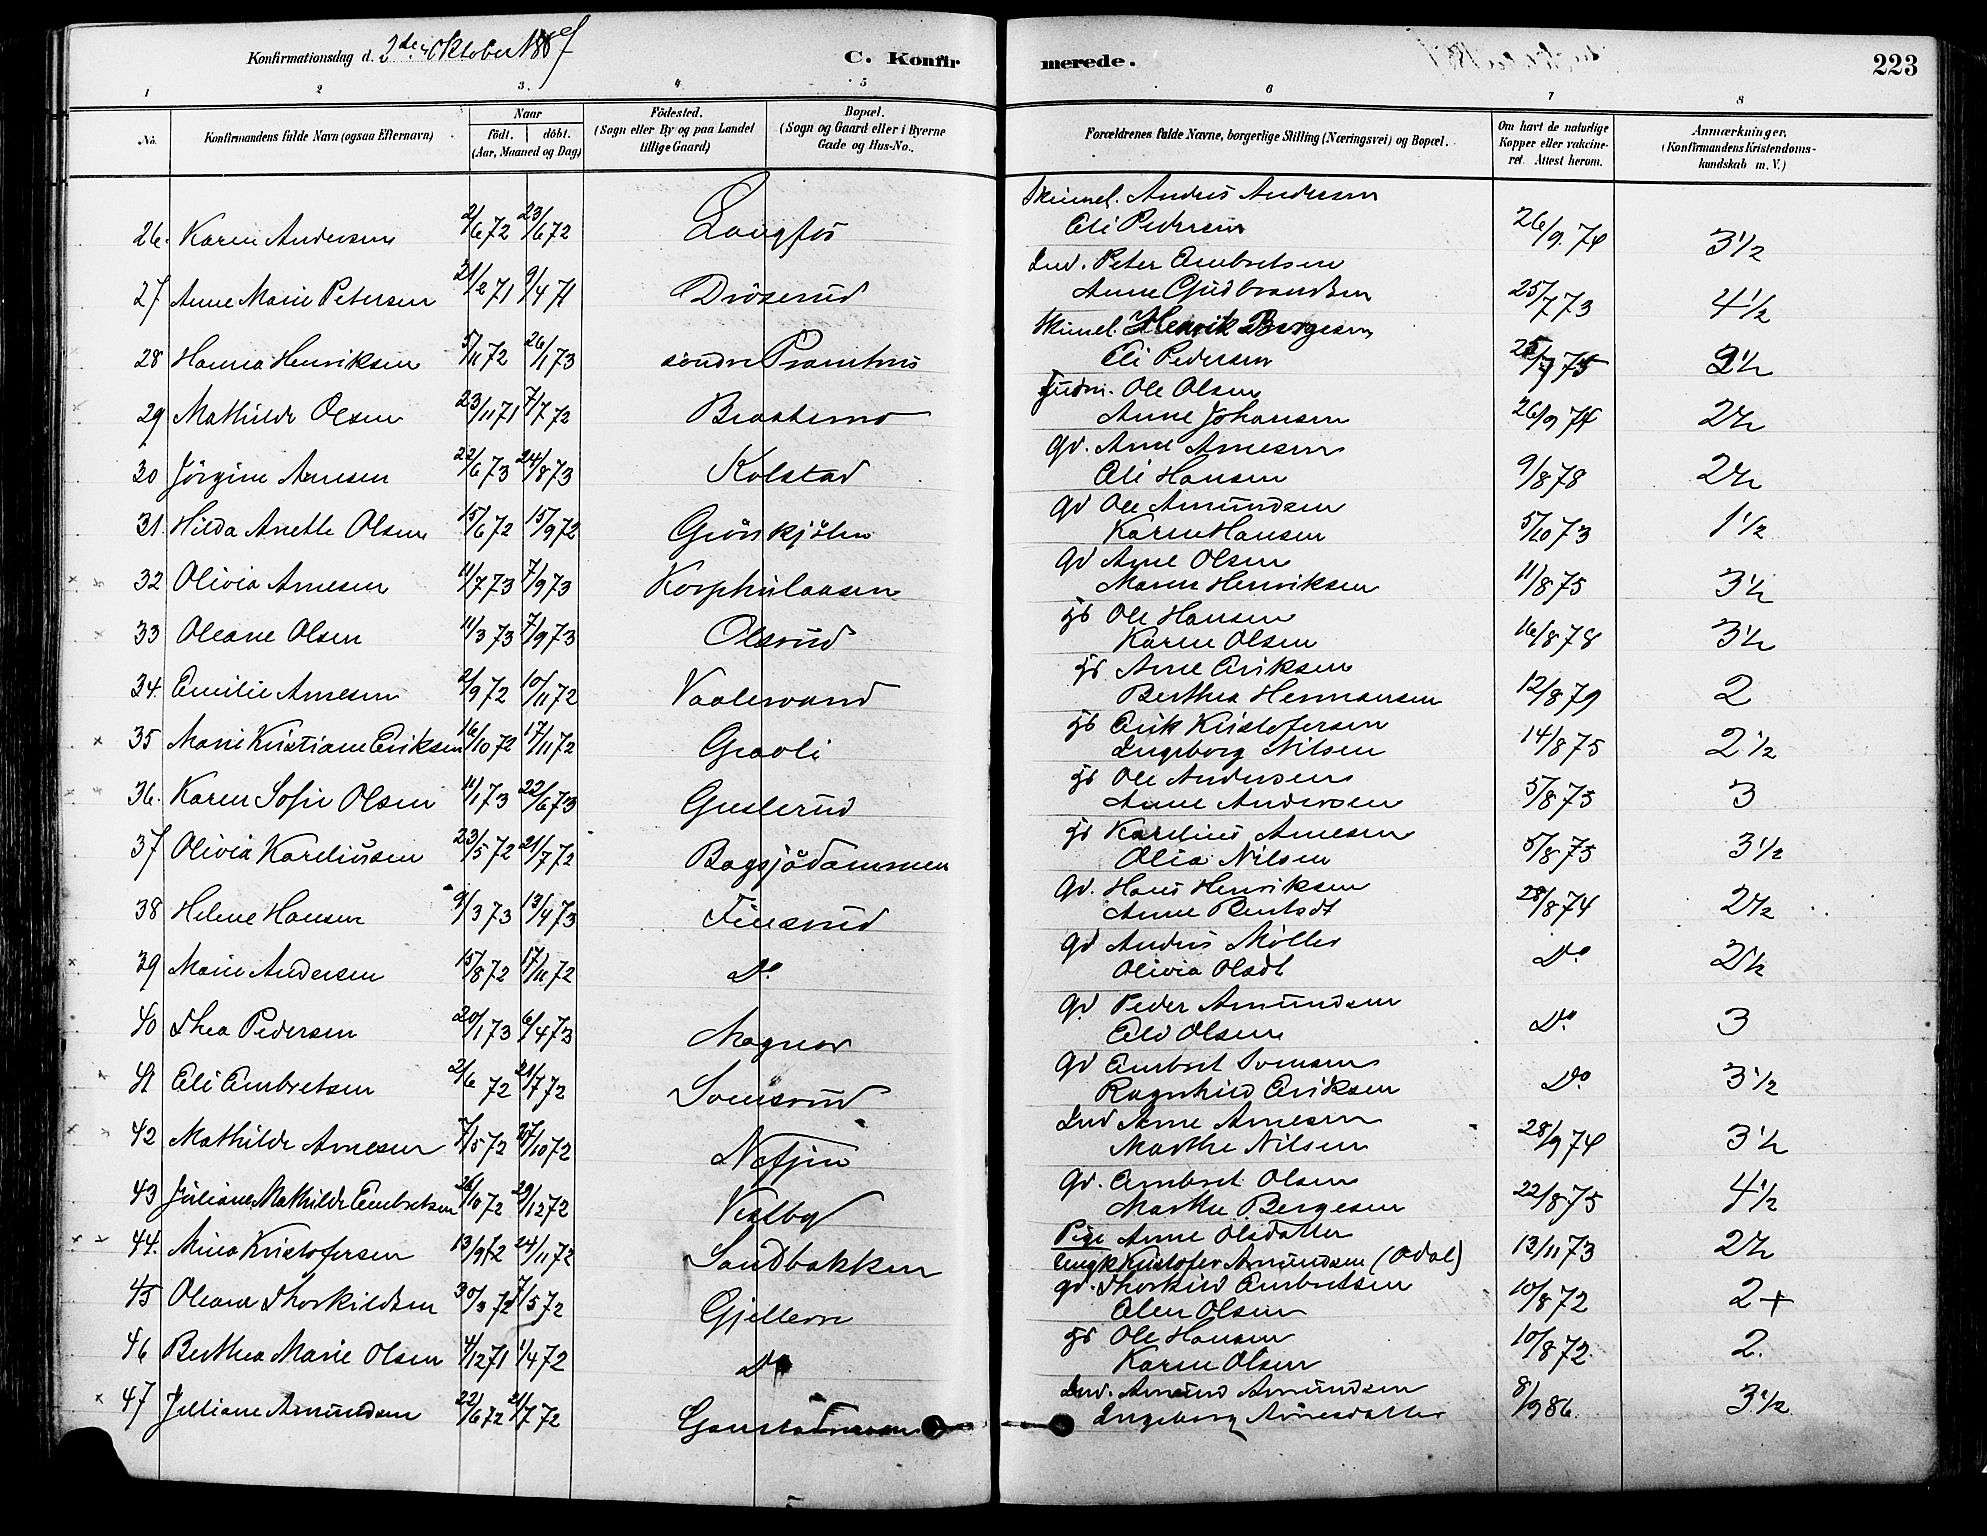 Konfirmationsdag d. 2den Oktober 1887
C. Konfirmerede.
223
1 2 3. 4 5 6 7 8
No. Konfirmandens fulde Navn (ogsaa Efternavn)
Naar
födt. döbt.
(Aar, Maaned og Dag)
Födested.
(Sogn eller By og paa Landet
tillige Gaard)
Bopæl.
(Sogn og Gaard eller i Byerne
Gade og Hus-No.
Forældrenes fulde Navne, borgerlige Stilling (Næringsvei) og Bopæl.
Om havt de naturlige
Kopper eller vakcine-
ret. Attest herom.
Anmærkninger.
(Konfirmandens Kristendoms-
kundskab m. V.)
26. Karen Andersen 2/6 72 23/6 72 Langfos Anders Andersen
Eli Pedersen 26/9. 74 3 1/2
27 Anne Marie Petersen 21/2 71 9/4 71 Dröserud Ind. Peter Embretsen
Anne Gudbrandsen 25/7 73 4 1/2
28 Hanna Henriksen 5/11 72 26/1 73 söndre Henrik Borgesen
Eli Pedersen
29 Mathilde Olsen 23/11 71 7/7 72 Braatemo Ole Olsen
Anne Johansen 26/9 74
30 Jörgine Arnesen 22/6 73 24/8 73 Kolstad Gd. Arne Arnesen
Eli Hansen 9/8 78
31. Hilda Anette Olsen 15/6 72 15/9 72 Grönkjölen Gd Ole Amundsen
Karen Hansen 5/10 73 1 1/2
32 Olivia Arnesen 11/7 73 7/9 73 Gd Arne Olsen
Maren Henriksen 11/8 75 3 1/2
33 Oleane Olsen 11/3 73 7/9 73 Olsrud Ole Hansen
Karen Olsen 16/8 78 3 1/2
34. Emilie Arnesen 2/9 72 10/11 72 Arne Eriksen
Berthea Hermansen 12/8 79 2
35 Marie Kristiane Eriksen 16/10 72 17/11 72 Graoli Erik Kristofersen
Ingeborg Nilsen 14/8 75 2 1/2
36. Karen Sofie Olsen 11/1 73 22/6 73 Guslerud Ole Andersen
Anne Andersen 5/8 75 3
37 Olivia Kareliusen 23/5 72 21/7 72 Bogsjödammen Karelius Arnesen
Olia Nilsen 5/8 75 3 1/2
38 Helene Hansen 9/3 73 13/4 73 Finsrud Gd. Hans Henriksen
Anne Berntsdt 28/8 74 2 1/2
39 Marie Andersen 15/8 72 17/11 72 Do Gd Anders Møller
Olivia Olsdt Do 2 1/2
40 Thea Pedersen 20/1 73 6/4 73 Magnor Gd Peder Amundsen
Olsen Do 3
41 Eli Embretsen 2/6 72 21/7 72 Svensrud Gd Embret Svensen
Ragnhild Eriksen Do 3 1/2
42 Mathilde Arnesen 7/5 72 27/10 72 Ind Arne Arnesen
Marthe Nilsen 28/9 74 3 1/2
43 Juliane Mathilde Embretsen 26/10 72 29/12 72 Vestby Gd. Embret Olsen
Marthe Bergesen 22/8 75 4 1/2
44. Mina Kristofersen 13/9 72 24/11 72 Sandbakken Pige Anne Olsdatter
Ungk Kristofer Amundsen (Odal) 13/11 73
45 Oleane Thorkildsen 30/3 72 7/5 72 Gjellern gd. Thorkild Embretsen
Elen Olsen 10/8 72 2+
46 Berthea Marie Olsen 4/12 71 1/4 72 Do Ole Hansen
Karen Olsen 10/8 72 2.
47 Juliane Amundsen 22/6 72 21/7 72 Ind. Amund Amundsen
Ingeborg Arnesdatter 8/9 86. 3 1/2